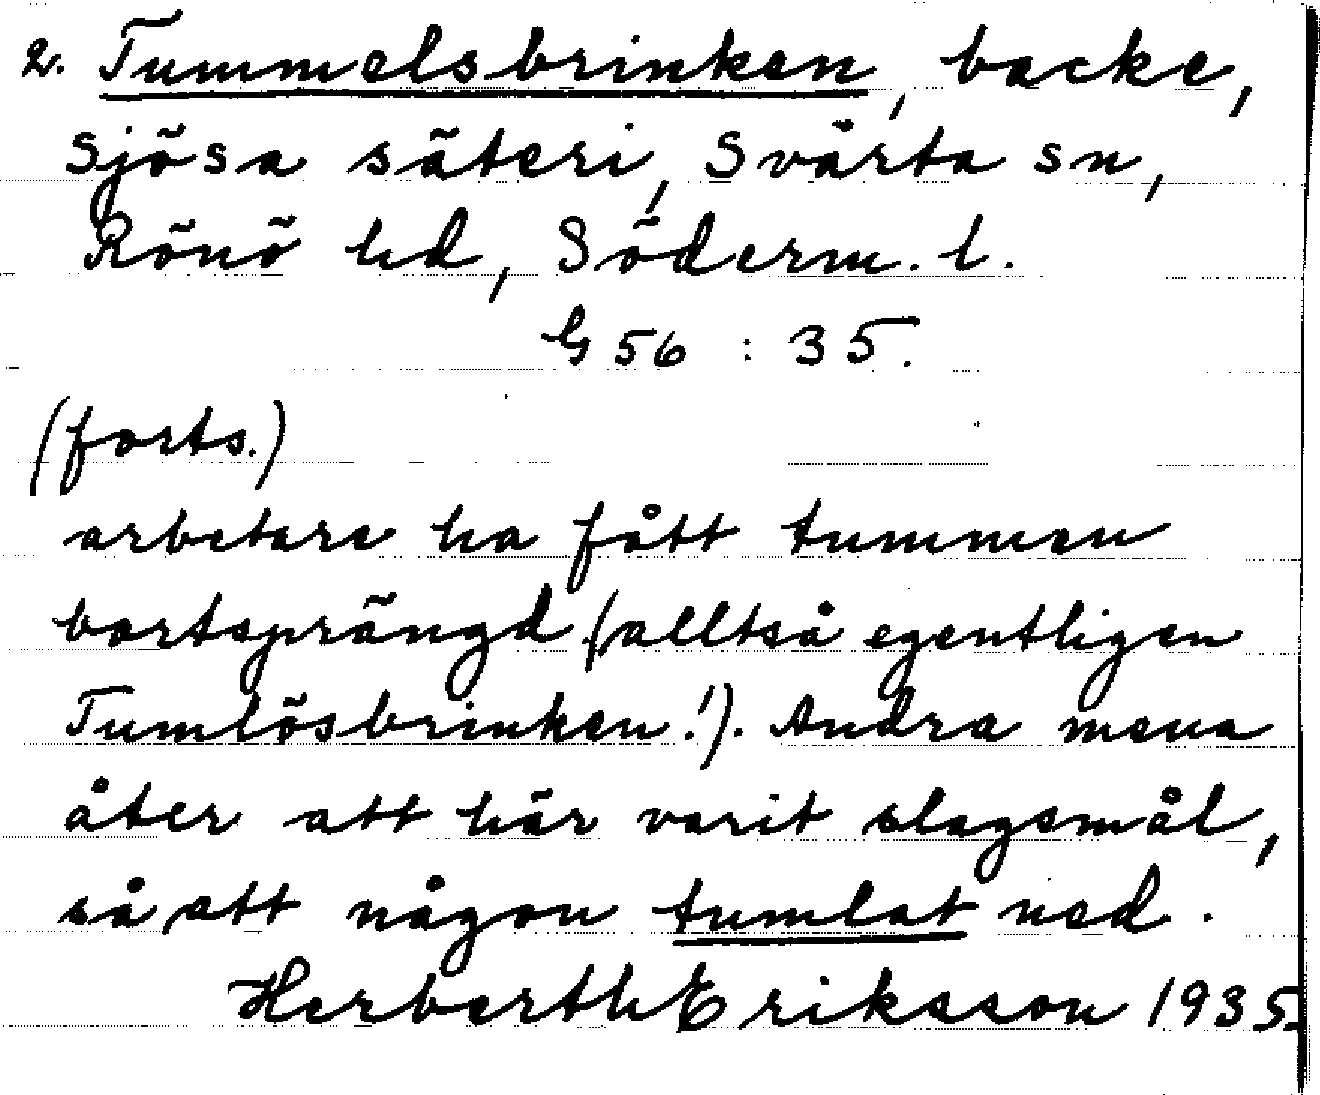 2. Tummelsbrinken, backe,
Sjösa säteri, Svärta sn,
Rönö hd, Söderm. l.
G 56 : 35.
(forts.)
arbetare ha fått tummen
bortsprängd (alltså egentligen
Tumlösbrinken!). Andra mena
åter att här varit slagsmål,
så att någon tumlat ned.
Herberth Eriksson 1935.